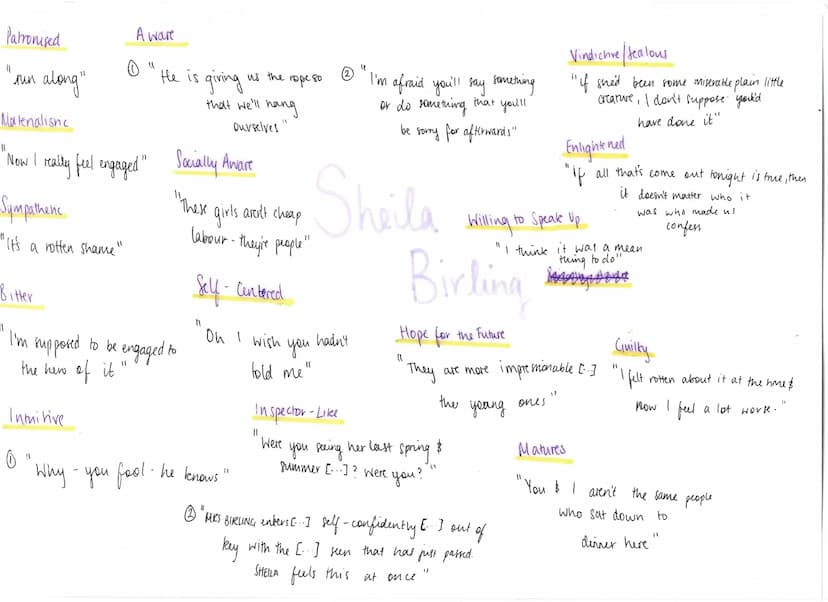 Patronised
"run along"
Aware
① "He is giving us the rope so
that we'll hang
ourselves"
② "I'm afraid you'll say something
or do something that you'll
be sorry for afterwards"
Vindictive/Jealous
"If she'd been some miserable plain little
creature, I don't suppose you'd
have done it"
Materialistic
"Now I really feel engaged"
Socially Aware
"These girls aren't cheap
labour - they're people"
Enlightened
"If all that's come out tonight is true, then
it doesn't matter who it
was who made us
confess
Sympathetic
"It's a rotten shame"
Sheila
Birling
Willing to Speak Up
"I think it was a mean
thing to do"
Bitter
"I'm supposed to be engaged to
the hero of it"
Self-Centered
"Oh I wish you hadn't
told me"
Hope for the Future
"They are more impressionable [...]
the young ones"
Guilty
"I felt rotten about it at the time &
now I feel a lot worse."
Intuitive
① "Why - you fool - he knows"
Inspector-Like
"Were you seeing her last spring &
summer [...]? Were you?"
Matures
"You & I aren't the same people
who sat down to
dinner here"
② "MRS BIRLING enters [...] self-confidently [...] out of
key with the [...] that has just passed.
SHEILA feels this at once"